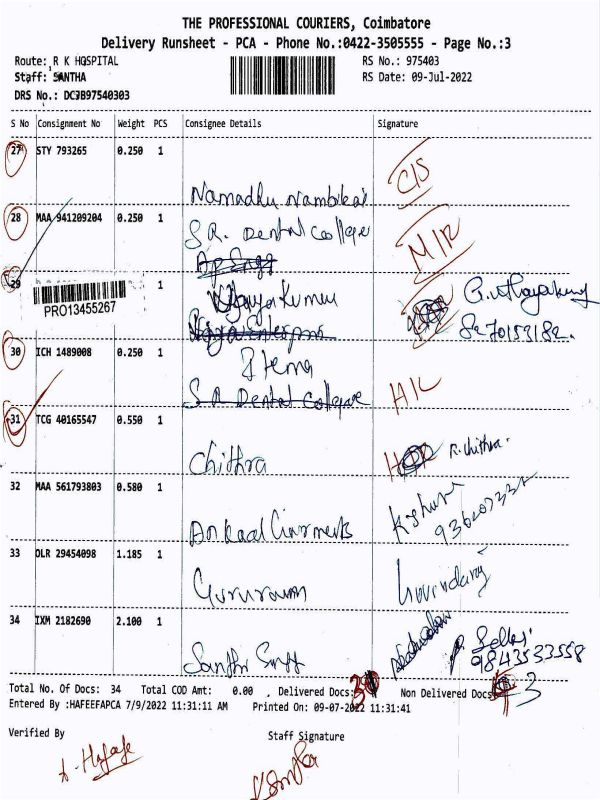 THE PROFESSIONAL COURIERS, Coimbatore
Delivery Runsheet - PCA - Phone No.:0422-3505555 - Page No.:3
Route: R K HOSPITAL RS No.: 975403
Staff: SANTHA RS Date: 09-Jul-2022
DRS No.: DCJB97540303
S No Consignment No Weight PCS Consignee Details Signature
27 STY 793265 0.250 1
C/S
Namadhu Nambikai
28 MAA 941209204 0.250 1
S.R. Dental College
M/R
29 1
PRO13455267
Vijaya Kumar
8270153182.
30 ICH 1489008 0.250 1
Hema
S R Dental College
H/L
31 TCG 40165547 0.550 1
Chithra R. Chithra.
32 MAA 561793803 0.580 1
33 OLR 29454098 1.185 1
Gururam Govindaraj
34 IXM 2182690 2.100 1
Santhi Singg
9843533558
Total No. Of Docs: 34 Total COD Amt: 0.00 , Delivered Docs: Non Delivered Docs 3
Entered By :HAFEEFAPCA 7/9/2022 11:31:11 AM Printed On: 09-07-2022 11:31:41
Verified By Staff Signature